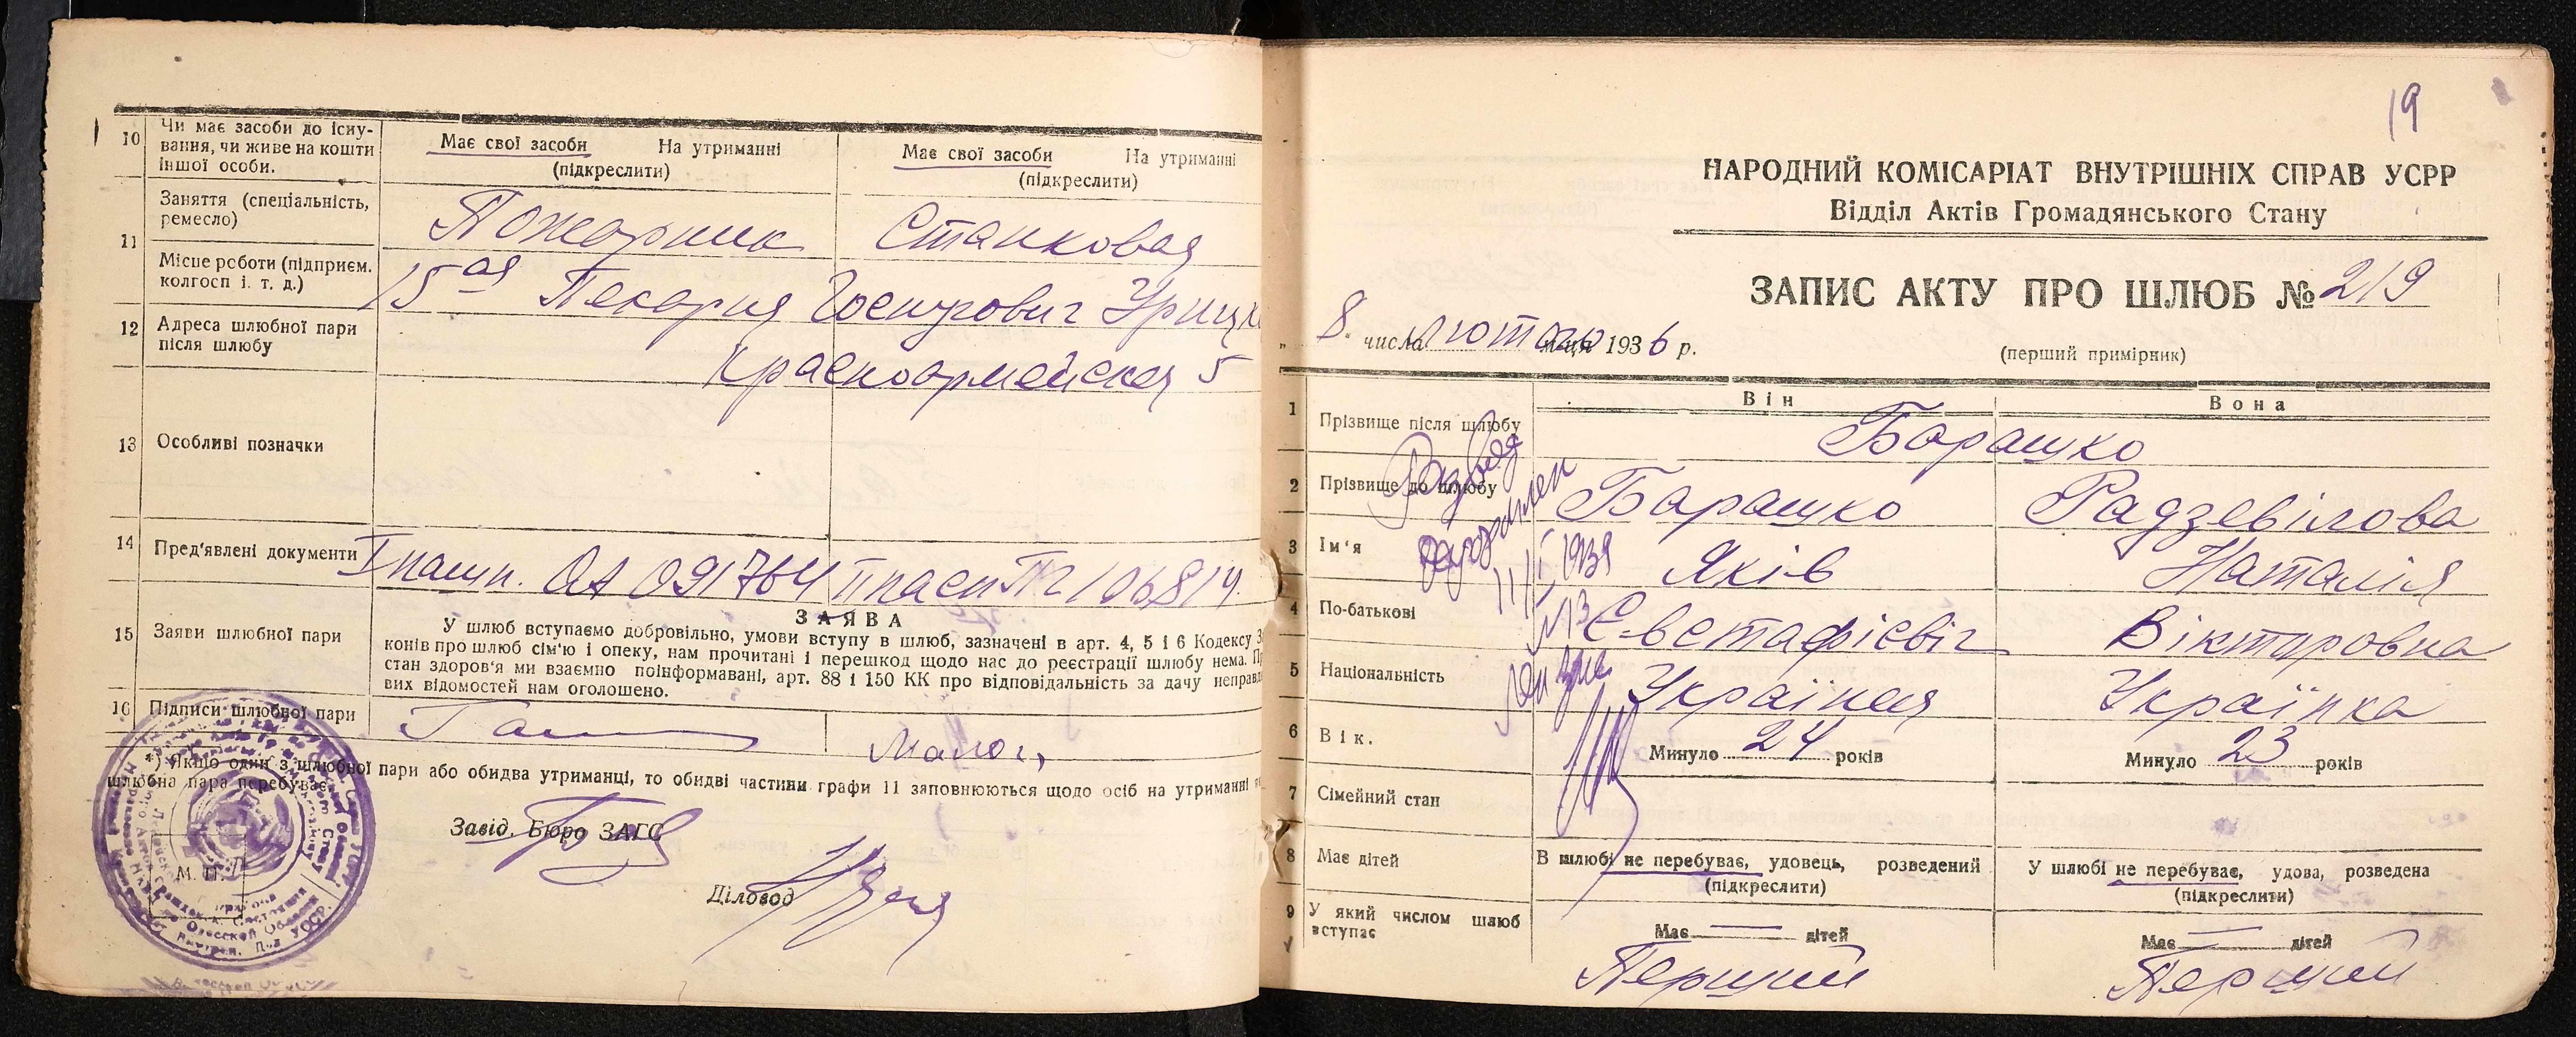 10 Чи має засоби до існу-
вання, чи живе на кошти
іншої особи.
Має свої засоби На утриманні
(підкреслити)
Має свої засоби На утриманні
(підкреслити)
11 Заняття (спеціальність,
ремесло)
Пожарник
Станковая
Місце роботи (підприєм.
колгосп і. т. д.)
15ая Пекарня
12 Адреса шлюбної пари
після шлюбу
Красноармейская 5
13 Особливі позначки
14 Пред'явлені документи
I пашп. ОА 091764
15 Заяви шлюбної пари
ЗАЯВА
У шлюб вступаємо добровільно, умови вступу в шлюб, зазначені в арт. 4, 5 і 6 Кодексу З
конів про шлюб сім'ю і опеку, нам прочитані і перешкод щодо нас до реєстрації шлюбу нема. П
стан здоров'я ми взаємно поінформавані, арт. 88 і 150 КК про відповідальність за дачу неправд
вих відомостей нам оголошено.
16 Підписи шлюбної пари
*) Якщо один з шлюбної пари або обидва утриманці, то обидві частини графи 11 заповнюються щодо осіб на утриманні
шлюбна пара перебуває.
Завід. Бюро ЗАГС
М. П.
Діловод
19
НАРОДНИЙ КОМІСАРІАТ ВНУТРІШНІХ СПРАВ УСРР
Відділ Актів Громадянського Стану
ЗАПИС АКТУ ПРО ШЛЮБ № 219
8 числа лютого м-ця 1936 р.
(перший примірник)
Він
Вона
1 Прізвище після шлюбу
Барашко
2 Прізвище до шлюбу
Барашко
Радзевілова
Развод
оформлен
3 Ім'я
Яків
Наталія
4 По-батькові
Євстафієвіч
Вікторовна
5 Національність
Українец
Українка
6 Вік.
Минуло 24 років
Минуло 23 років
7 Сімейний стан
8 Має дітей
В шлюбі не перебуває, удовець, розведений
(підкреслити)
У шлюбі не перебуває, удова, розведена
(підкреслити)
9 У який числом шлюб
вступає
Має — дітей
Має — дітей
Перший
Перший